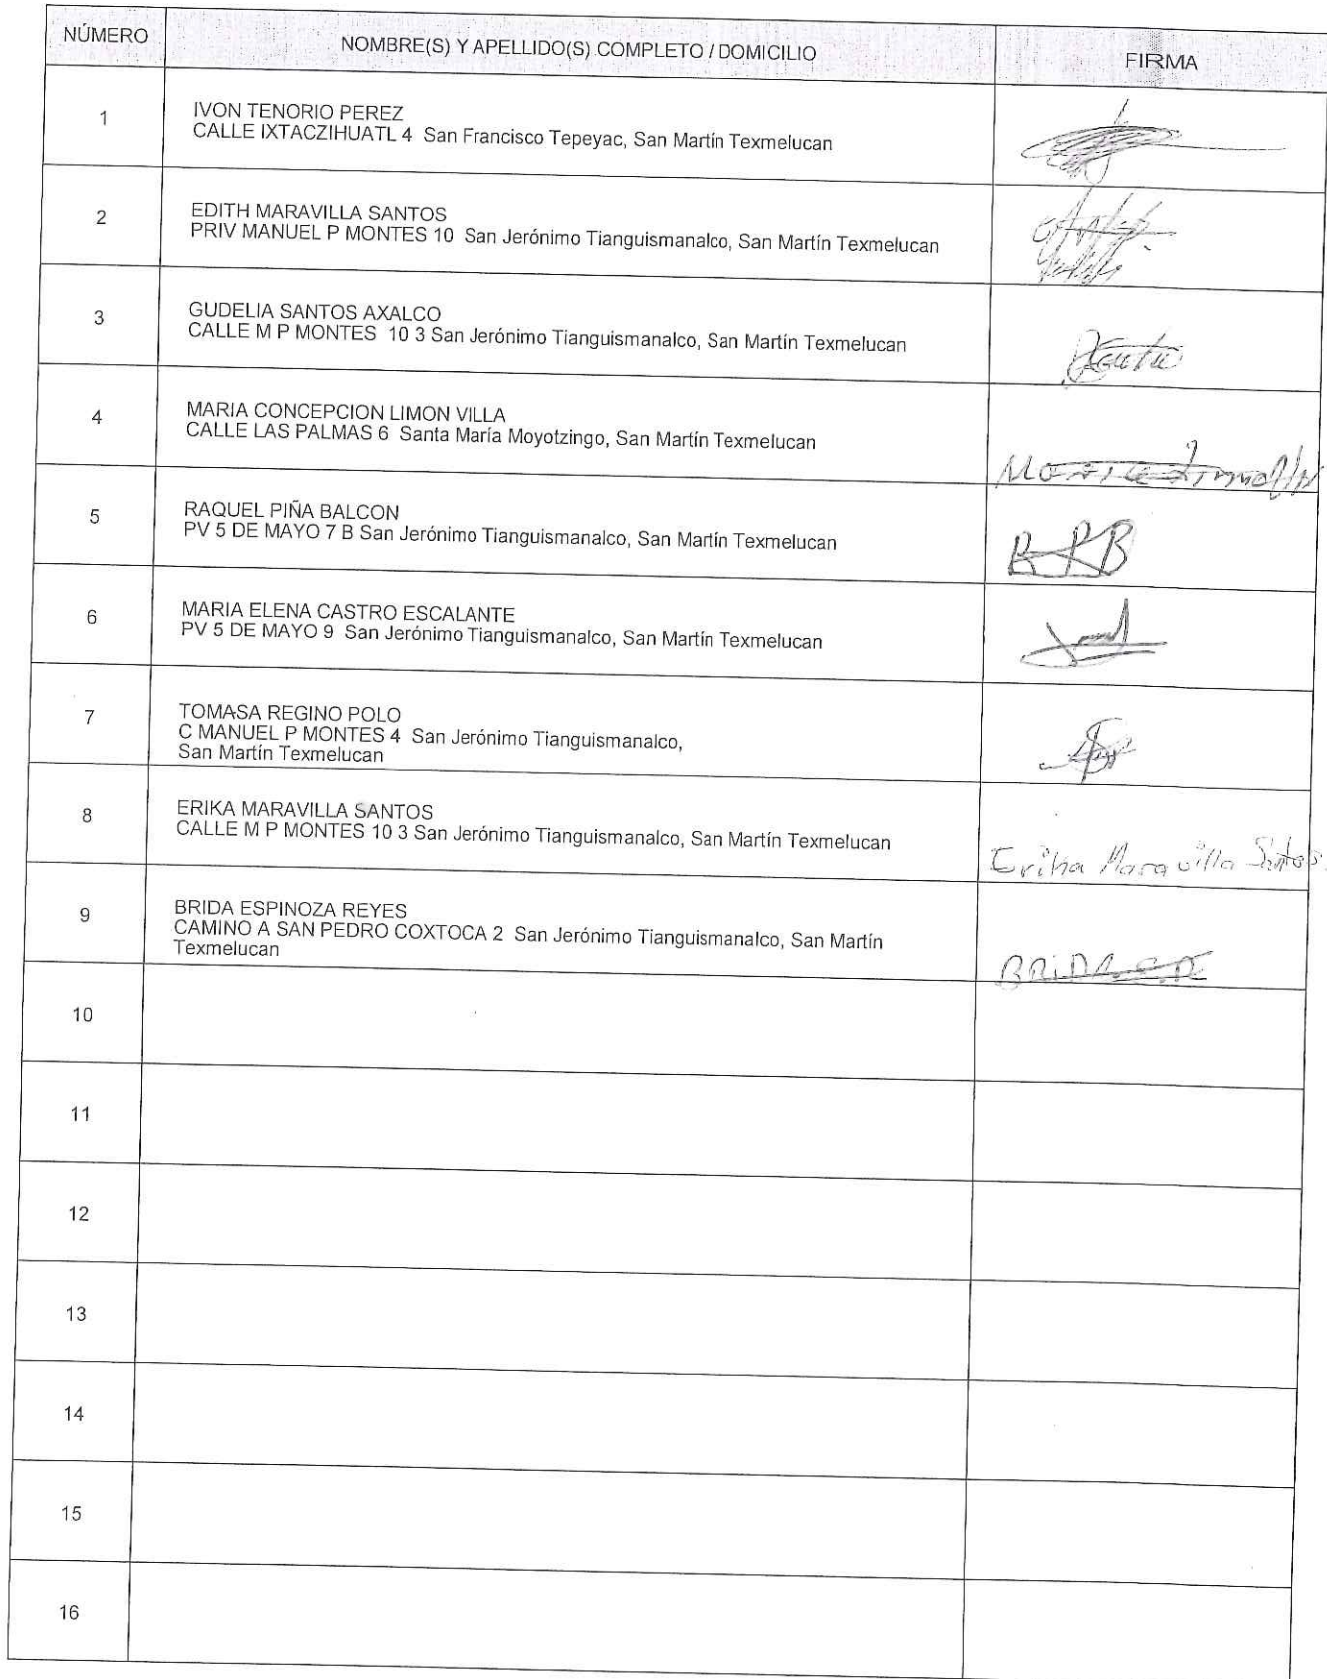 NÚMERO NOMBRE(S) Y APELLIDO(S) COMPLETO / DOMICILIO FIRMA
1 IVON TENORIO PEREZ
CALLE IXTACZIHUATL 4 San Francisco Tepeyac, San Martín Texmelucan
2 EDITH MARAVILLA SANTOS
PRIV MANUEL P MONTES 10 San Jerónimo Tianguismanalco, San Martín Texmelucan
3 GUDELIA SANTOS AXALCO
CALLE M P MONTES 10 3 San Jerónimo Tianguismanalco, San Martín Texmelucan
4 MARIA CONCEPCION LIMON VILLA
CALLE LAS PALMAS 6 Santa María Moyotzingo, San Martín Texmelucan
5 RAQUEL PIÑA BALCON
PV 5 DE MAYO 7 B San Jerónimo Tianguismanalco, San Martín Texmelucan
RPB
6 MARIA ELENA CASTRO ESCALANTE
PV 5 DE MAYO 9 San Jerónimo Tianguismanalco, San Martín Texmelucan
7 TOMASA REGINO POLO
C MANUEL P MONTES 4 San Jerónimo Tianguismanalco,
San Martín Texmelucan
8 ERIKA MARAVILLA SANTOS
CALLE M P MONTES 10 3 San Jerónimo Tianguismanalco, San Martín Texmelucan
Erika Maravilla Santos
9 BRIDA ESPINOZA REYES
CAMINO A SAN PEDRO COXTOCA 2 San Jerónimo Tianguismanalco, San Martín
Texmelucan
BRIDA E.R
10
11
12
13
14
15
16